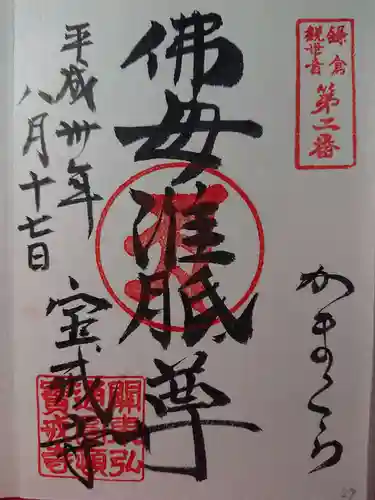 鎌倉
観世音
第二番
かまくら
佛母准胝尊
平成卅年
八月十七日
宝戒寺
寶戒寺
27